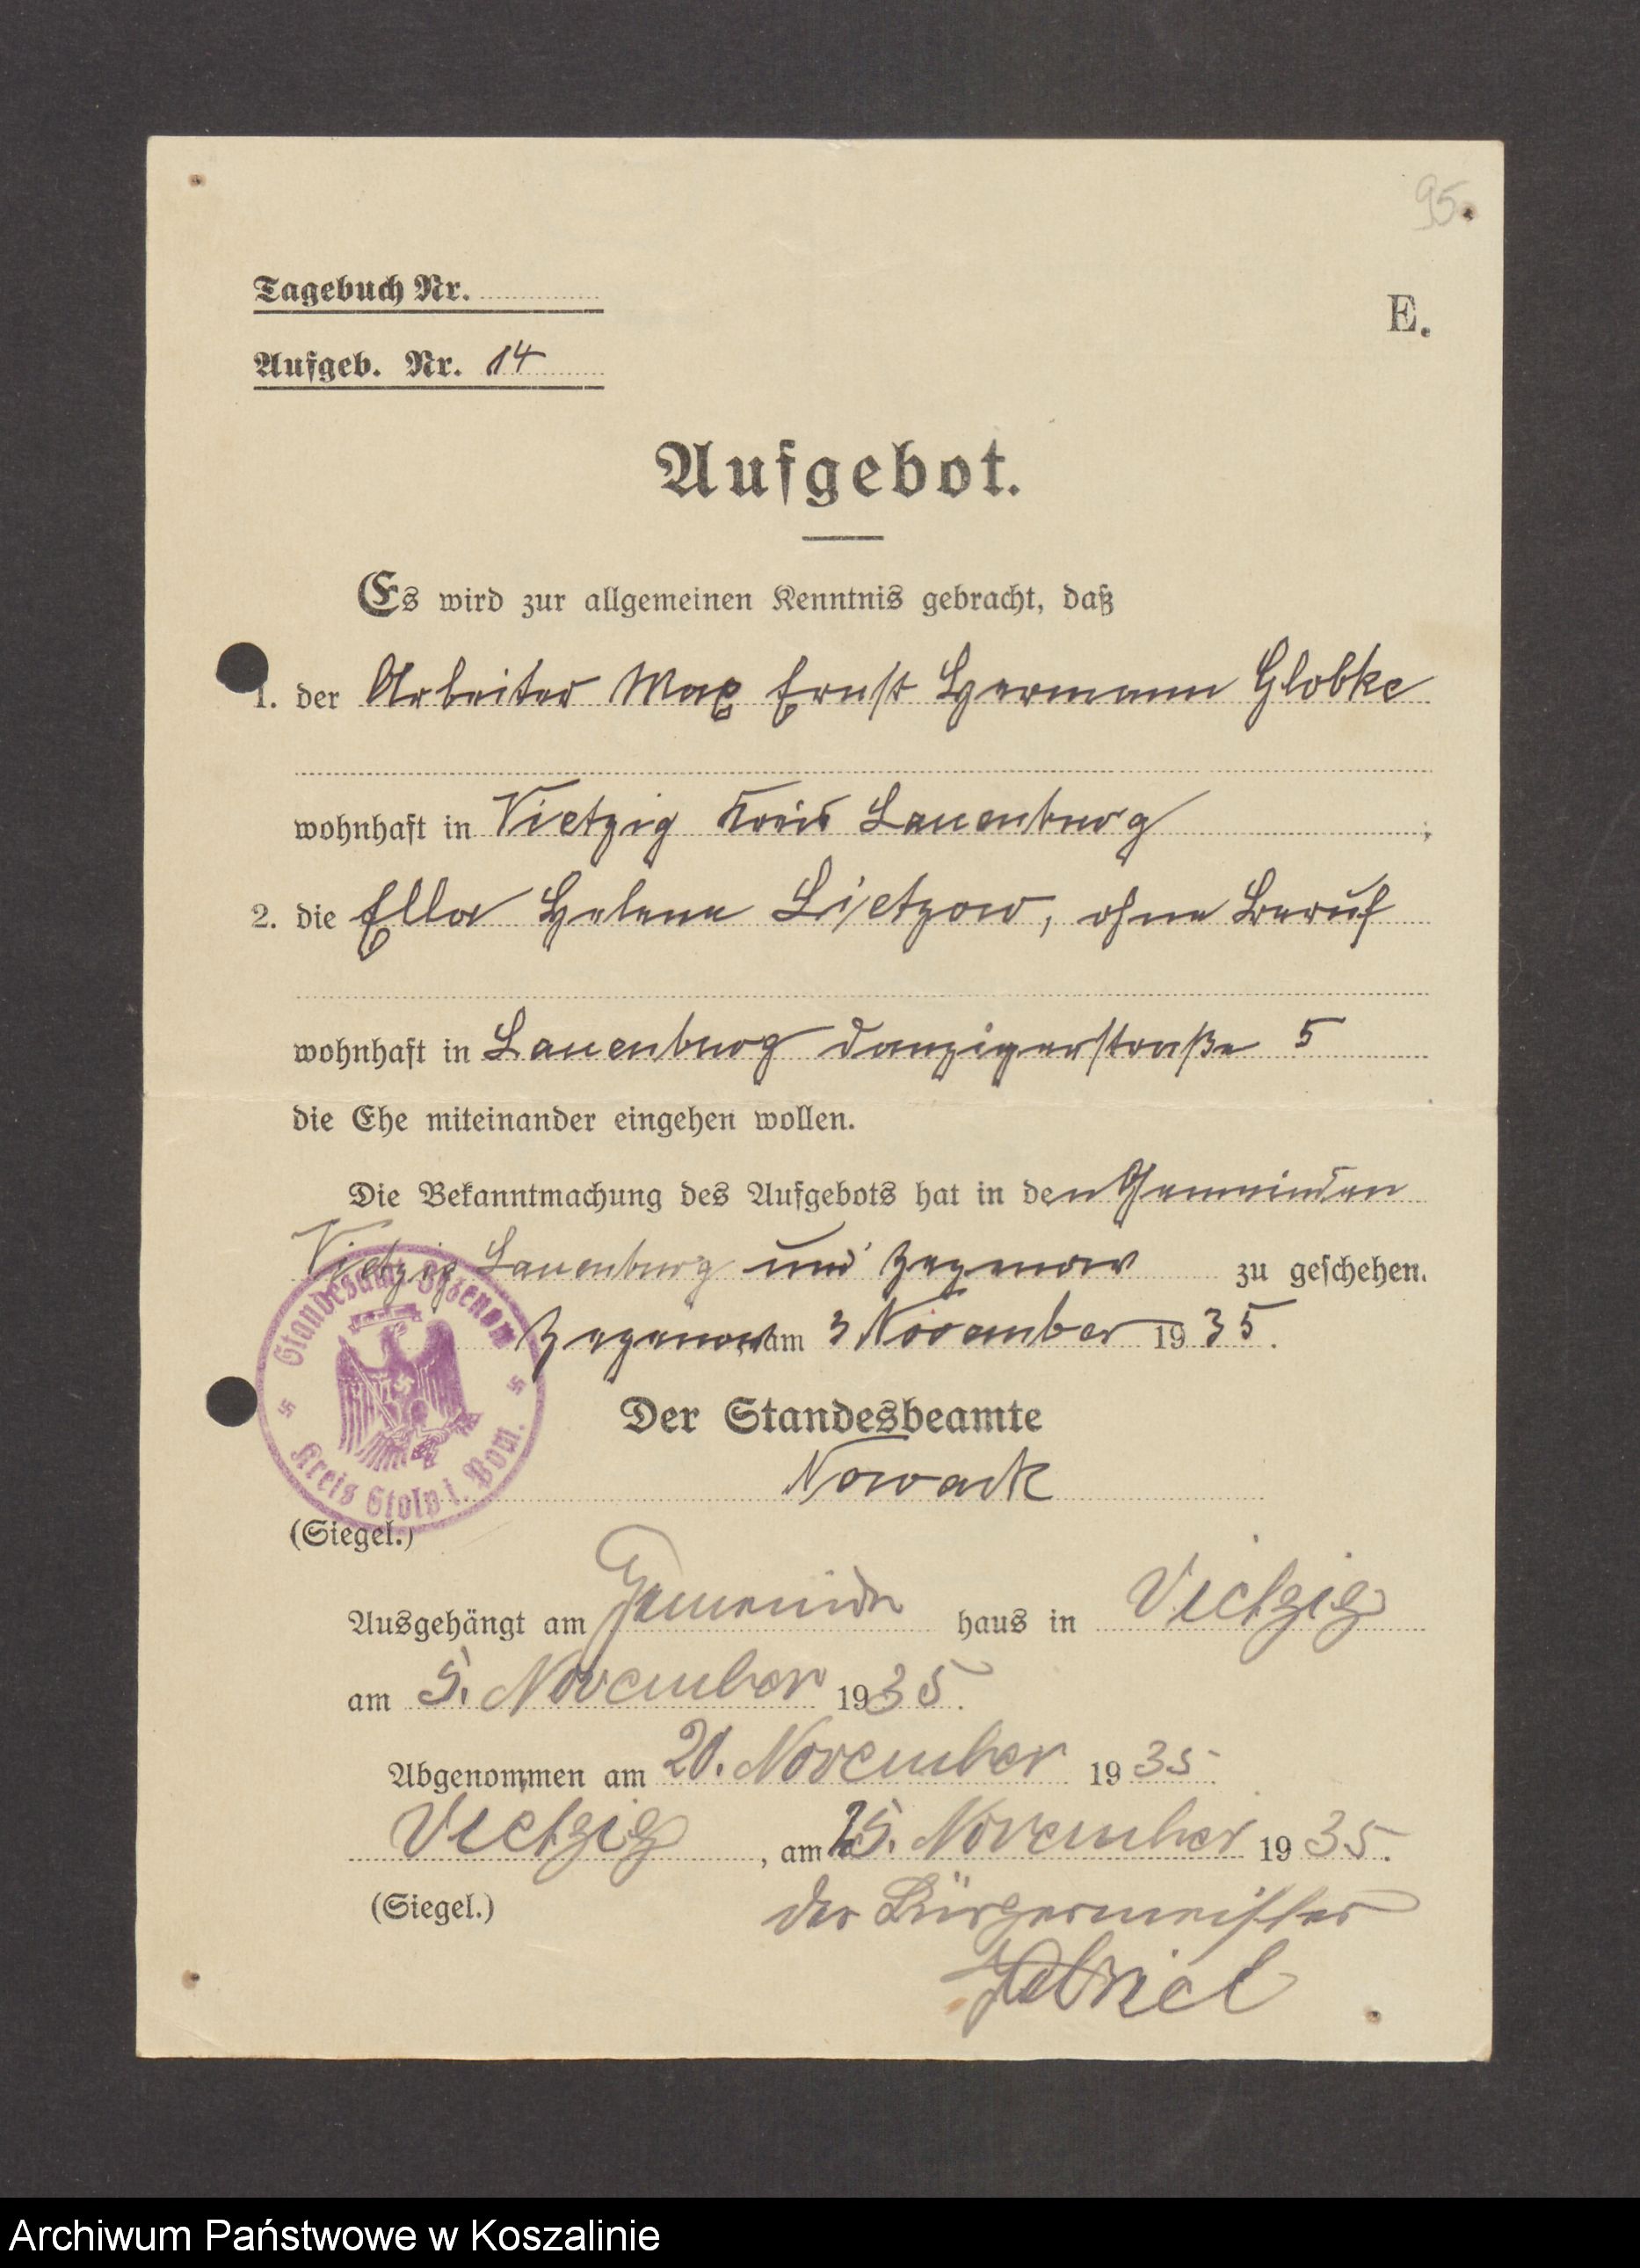 95.
Tagebuch Nr.
E.
Aufgeb. Nr. 14
Aufgebot.
Es wird zur allgemeinen Kenntnis gebracht, daß
1. der Arbeiter Max Ernst Hermann Globke
wohnhaft in Vietzig Kreis Lauenburg ;
2. die Ella Helene Lietzow, ohne Beruf
wohnhaft in Lauenburg Danzigerstraße 5
die Ehe miteinander eingehen wollen.
Die Bekanntmachung des Aufgebots hat in den Gemeinden
Vietzig Lauenburg und Zezenow zu geschehen.
Zezenow, am 3 November 1935.
Standesamt Zezenow
Kreis Stolp i. Pom.
Der Standesbeamte
Nowack
(Siegel.)
Ausgehängt am Gemeinde haus in Vietzig
am 5. November 1935.
Abgenommen am 20. November 1935.
Vietzig, am 25. November 1935.
(Siegel.) der Bürgermeister
Archiwum Państwowe w Koszalinie